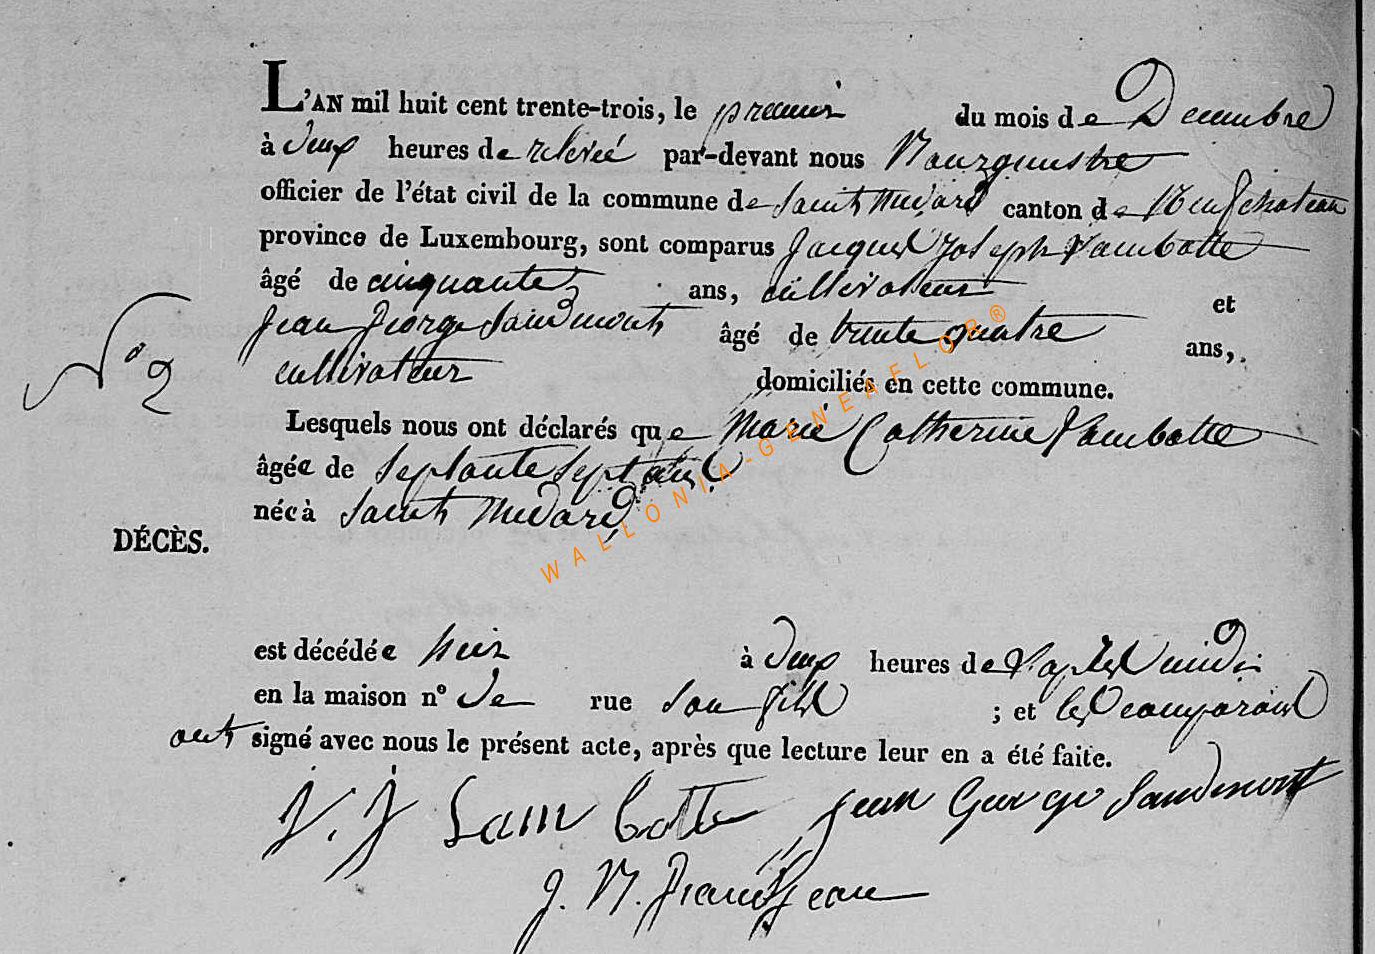 L'AN mil huit cent trente-trois, le premier du mois de Decembre
à deux heures de relevée par-devant nous Bourgmestre
officier de l'état civil de la commune de Saint Médard canton de Neufchateau
province de Luxembourg, sont comparus Jacques Joseph Lambotte
âgé de cinquante ans, cultivateur et
Jean George Saudmont âgé de trente quatre ans,
N° 2
cultivateur domiciliés en cette commune.
Lesquels nous ont déclarés que Marie Catherine Lambotte
âgée de septante sept ans
née à Saint Médard
DÉCÈS.
est décédée hier à deux heures de l'après midi
en la maison n° de rue son fils ; et les comparans
ont signé avec nous le présent acte, après que lecture leur en a été faite.
J. J Lambotte Jean George Saudmont
J. N. Grandjean
WALLONIA-GENEAFLOR®